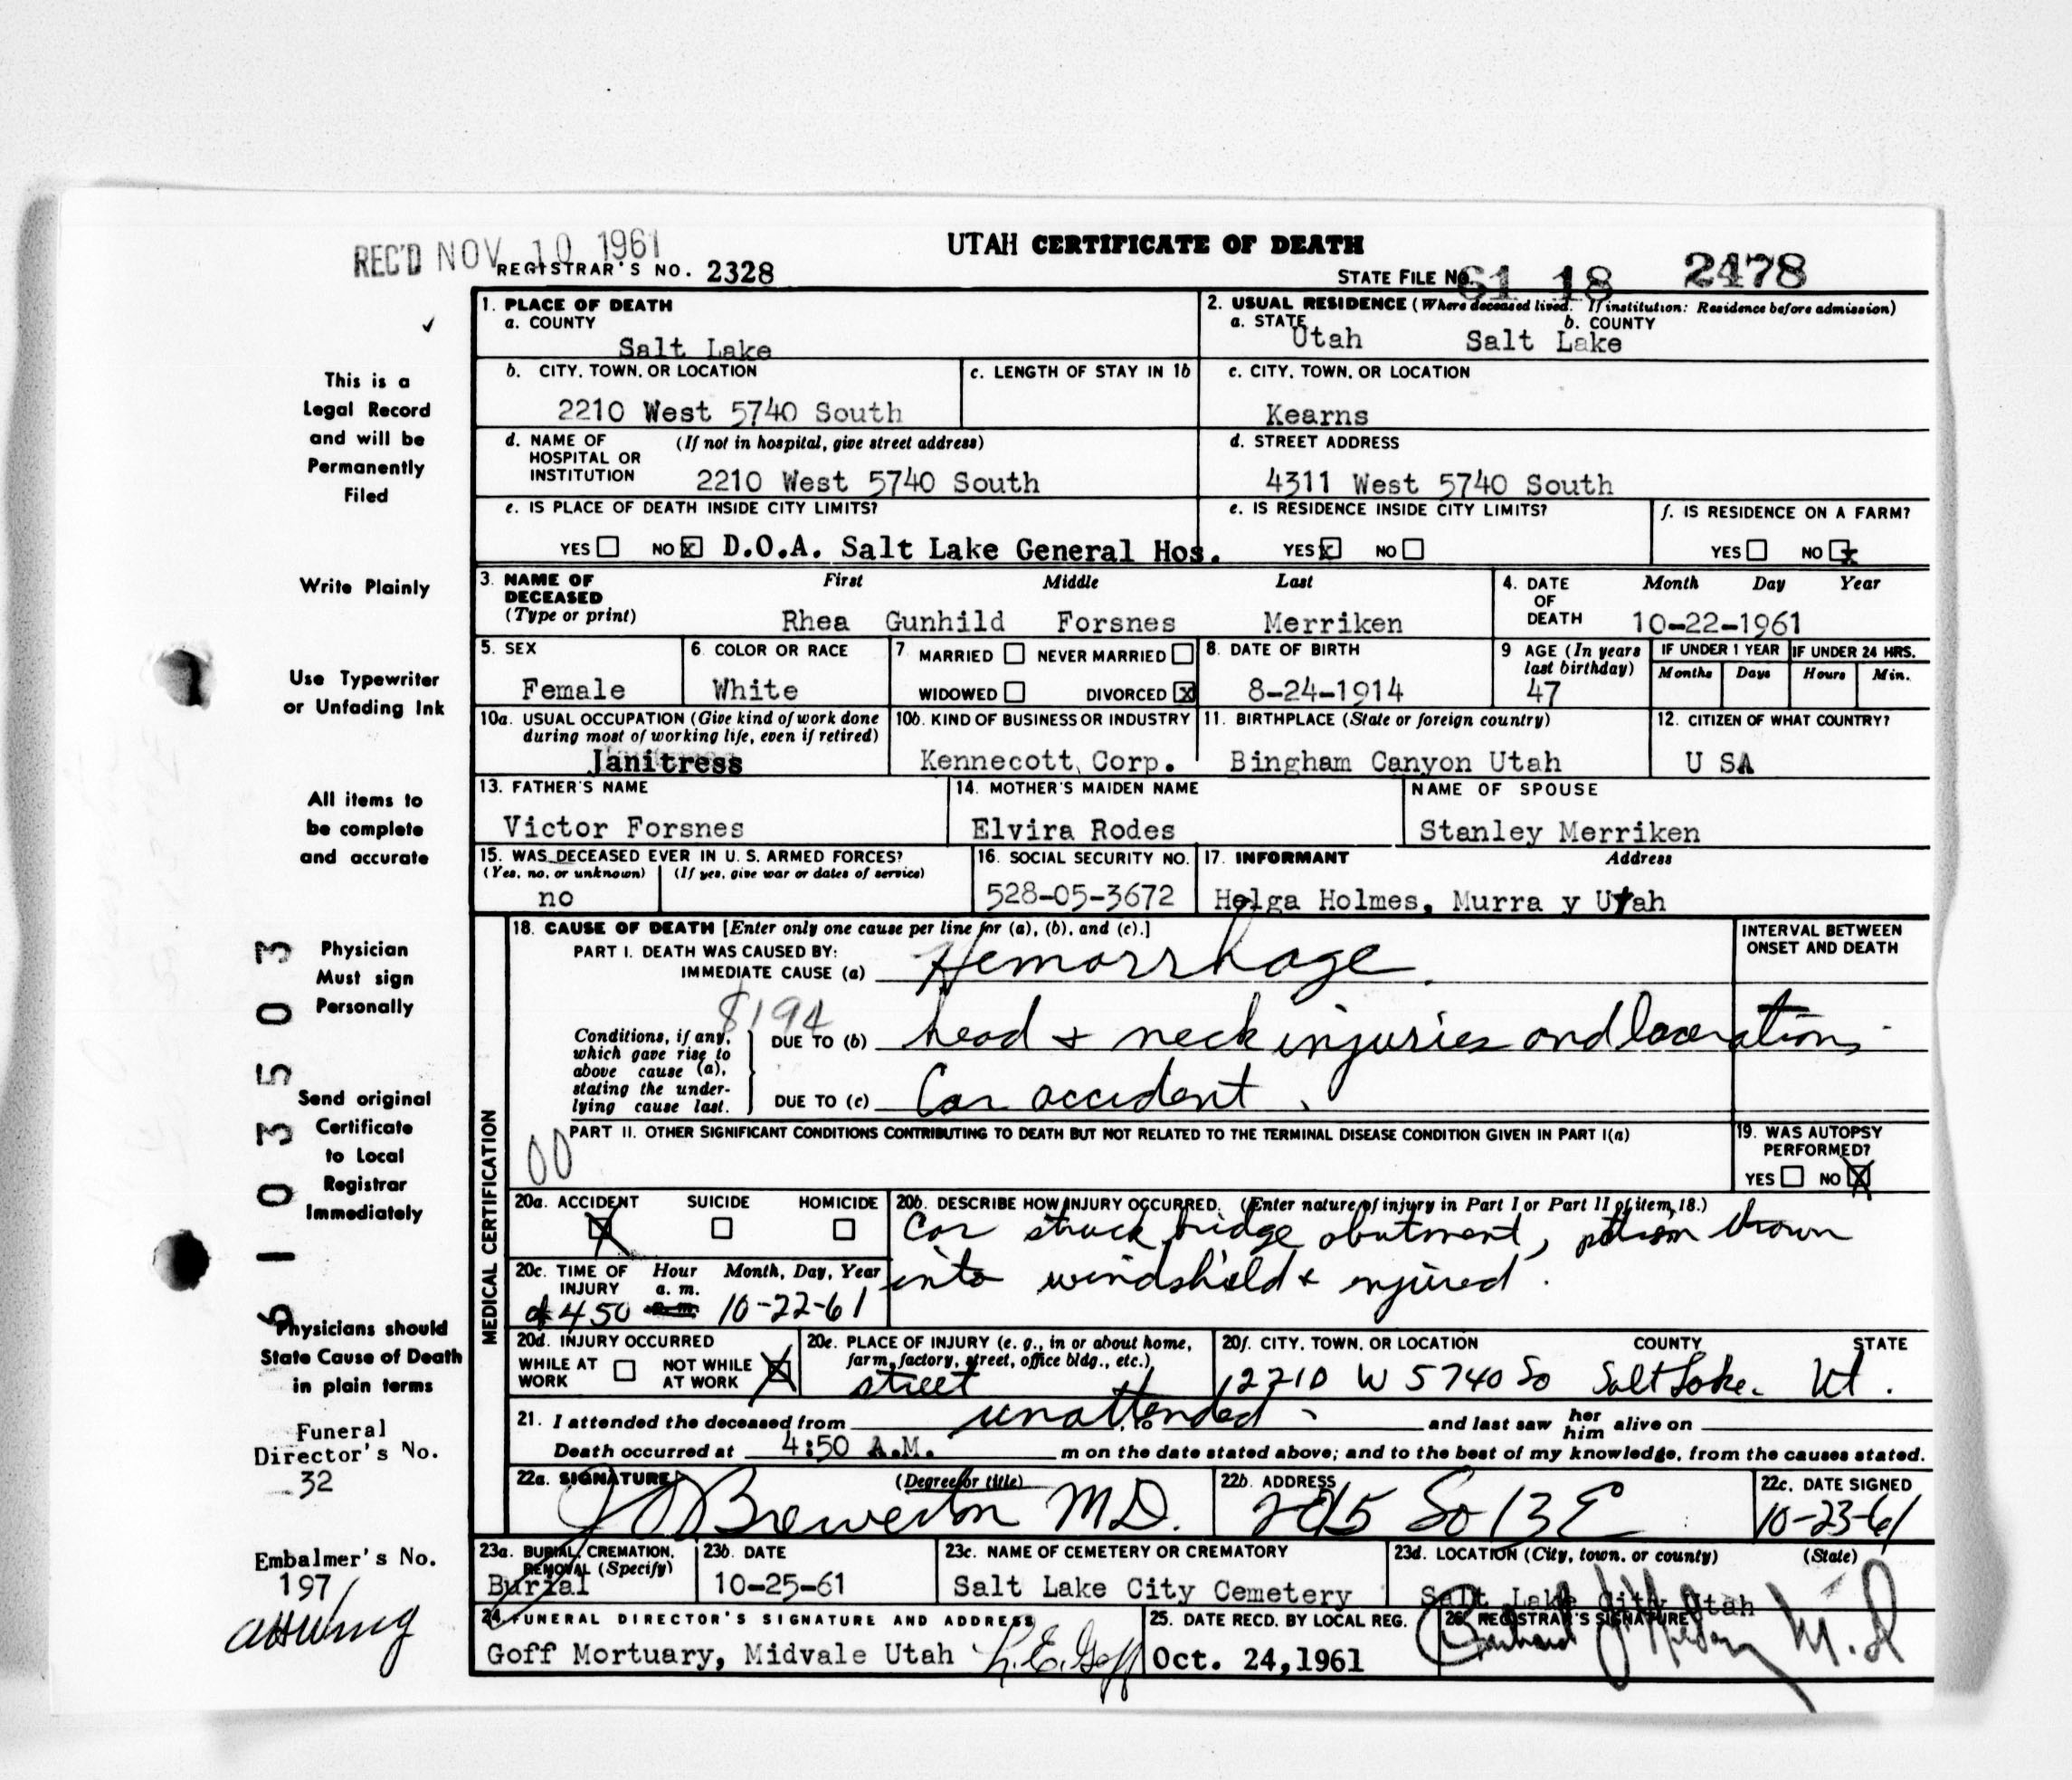 REC'D NOV 10 1961
UTAH CERTIFICATE OF DEATH
REGISTRAR'S NO. 2328
STATE FILE NO. 61 18 2478
1. PLACE OF DEATH
a. COUNTY
Salt Lake
2. USUAL RESIDENCE (Where deceased lived. If institution: Residence before admission)
a. STATE b. COUNTY
Utah Salt Lake
b. CITY, TOWN, OR LOCATION
2210 West 5740 South
c. LENGTH OF STAY IN 1b
c. CITY, TOWN, OR LOCATION
Kearns
d. NAME OF HOSPITAL OR INSTITUTION (If not in hospital, give street address)
2210 West 5740 South
d. STREET ADDRESS
4311 West 5740 South
e. IS PLACE OF DEATH INSIDE CITY LIMITS?
YES NO x D.O.A. Salt Lake General Hos.
e. IS RESIDENCE INSIDE CITY LIMITS?
YES x NO
f. IS RESIDENCE ON A FARM?
YES NO x
3. NAME OF DECEASED (Type or print)
First Middle Last
Rhea Gunhild Forsnes Merriken
4. DATE OF DEATH
Month Day Year
10-22-1961
5. SEX
Female
6. COLOR OR RACE
White
7 MARRIED NEVER MARRIED
WIDOWED DIVORCED x
8. DATE OF BIRTH
8-24-1914
9 AGE (In years last birthday)
47
IF UNDER 1 YEAR IF UNDER 24 HRS.
Months Days Hours Min.
10a. USUAL OCCUPATION (Give kind of work done during most of working life, even if retired)
Janitress
10b. KIND OF BUSINESS OR INDUSTRY
Kennecott Corp.
11. BIRTHPLACE (State or foreign country)
Bingham Canyon Utah
12. CITIZEN OF WHAT COUNTRY?
U SA
13. FATHER'S NAME
Victor Forsnes
14. MOTHER'S MAIDEN NAME
Elvira Rodes
NAME OF SPOUSE
Stanley Merriken
15. WAS DECEASED EVER IN U. S. ARMED FORCES?
(Yes, no, or unknown) (If yes, give war or dates of service)
no
16. SOCIAL SECURITY NO.
528-05-3672
17. INFORMANT Address
Helga Holmes, Murra y Utah
MEDICAL CERTIFICATION
18. CAUSE OF DEATH [Enter only one cause per line for (a), (b), and (c).]
INTERVAL BETWEEN ONSET AND DEATH
PART I. DEATH WAS CAUSED BY:
IMMEDIATE CAUSE (a) Hemorrhage
8194
Conditions, if any, which gave rise to above cause (a), stating the underlying cause last.
DUE TO (b) head & neck injuries and lacerations
DUE TO (c) Car accident
PART II. OTHER SIGNIFICANT CONDITIONS CONTRIBUTING TO DEATH BUT NOT RELATED TO THE TERMINAL DISEASE CONDITION GIVEN IN PART I(a)
00
19. WAS AUTOPSY PERFORMED?
YES NO X
20a. ACCIDENT SUICIDE HOMICIDE
X
20b. DESCRIBE HOW INJURY OCCURRED. (Enter nature of injury in Part I or Part II of item 18.)
Car struck bridge abutment, person thrown
into windshield & injured.
20c. TIME OF INJURY Hour a. m. p. m. Month, Day, Year
450 10-22-61
20d. INJURY OCCURRED
WHILE AT WORK NOT WHILE AT WORK X
20e. PLACE OF INJURY (e. g., in or about home, farm, factory, street, office bldg., etc.)
street
20f. CITY, TOWN, OR LOCATION COUNTY STATE
2210 W 5740 So Salt Lake. Ut.
21. I attended the deceased from unattended to and last saw her him alive on
Death occurred at 4:50 A.M. m on the date stated above; and to the best of my knowledge, from the causes stated.
22a. SIGNATURE (Degree or title)
Brewerton M.D.
22b. ADDRESS
2015 So 13 E
22c. DATE SIGNED
10-23-61
23a. BURIAL, CREMATION, REMOVAL (Specify)
Burial
23b. DATE
10-25-61
23c. NAME OF CEMETERY OR CREMATORY
Salt Lake City Cemetery
23d. LOCATION (City, town, or county) (State)
Salt Lake City Utah
24. FUNERAL DIRECTOR'S SIGNATURE AND ADDRESS
Goff Mortuary, Midvale Utah L.E. Goff
25. DATE RECD. BY LOCAL REG.
Oct. 24,1961
26. REGISTRAR'S SIGNATURE
M.D
This is a
Legal Record
and will be
Permanently
Filed
Write Plainly
Use Typewriter
or Unfading Ink
All items to
be complete
and accurate
Physician
Must sign
Personally
Send original
Certificate
to Local
Registrar
Immediately
Physicians should
State Cause of Death
in plain terms
61 035503
Funeral
Director's No.
32
Embalmer's No.
197